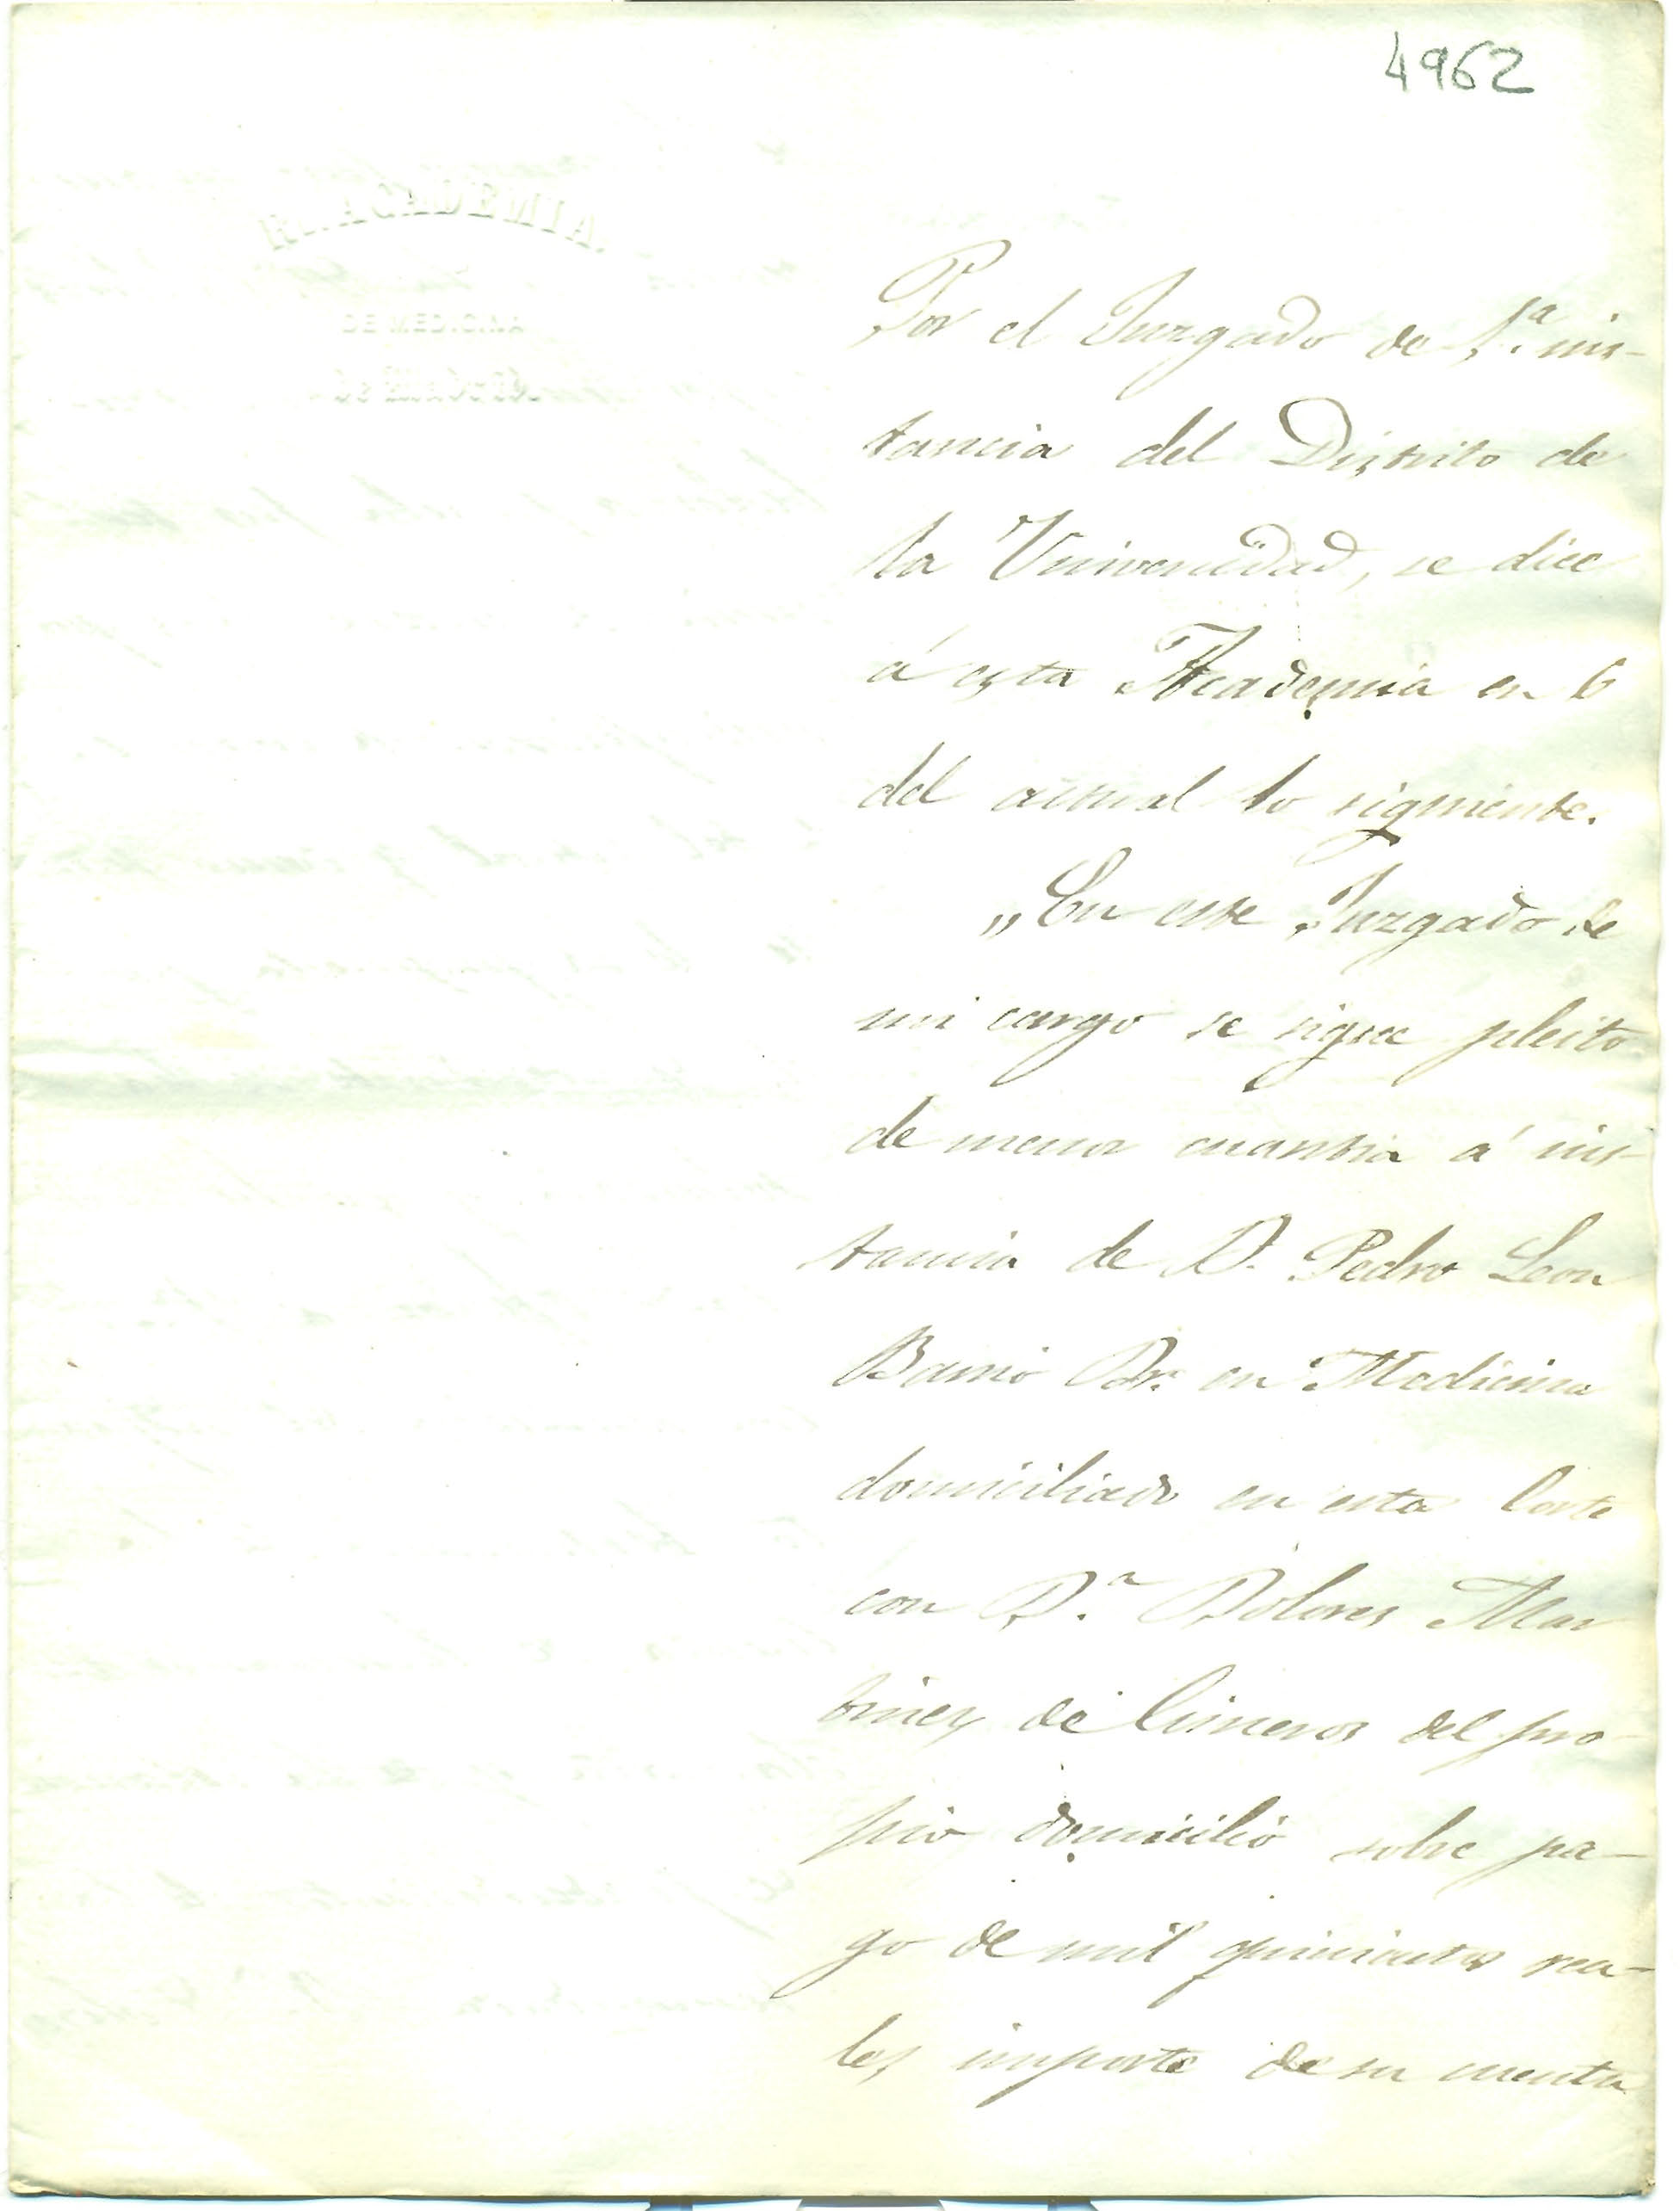 4962
R. ACADEMIA
DE MEDICINA
Por el Juzgado de 1.ª ins-
tancia del Distrito de
la Universidad, se dice
á esta Academia en 6
del actual lo siguiente.
„En este Juzgado de
mi cargo se sigue pleito
de menor cuantia á ins-
tancia de D. Pedro Leon
Barrio Dr. en Medicina
domiciliado en esta Corte
con D.ª Dolores Mar
tinez de Cisneros del pro-
pio domicilio sobre pa-
go de mil quinientos rea-
les importe de su cuenta